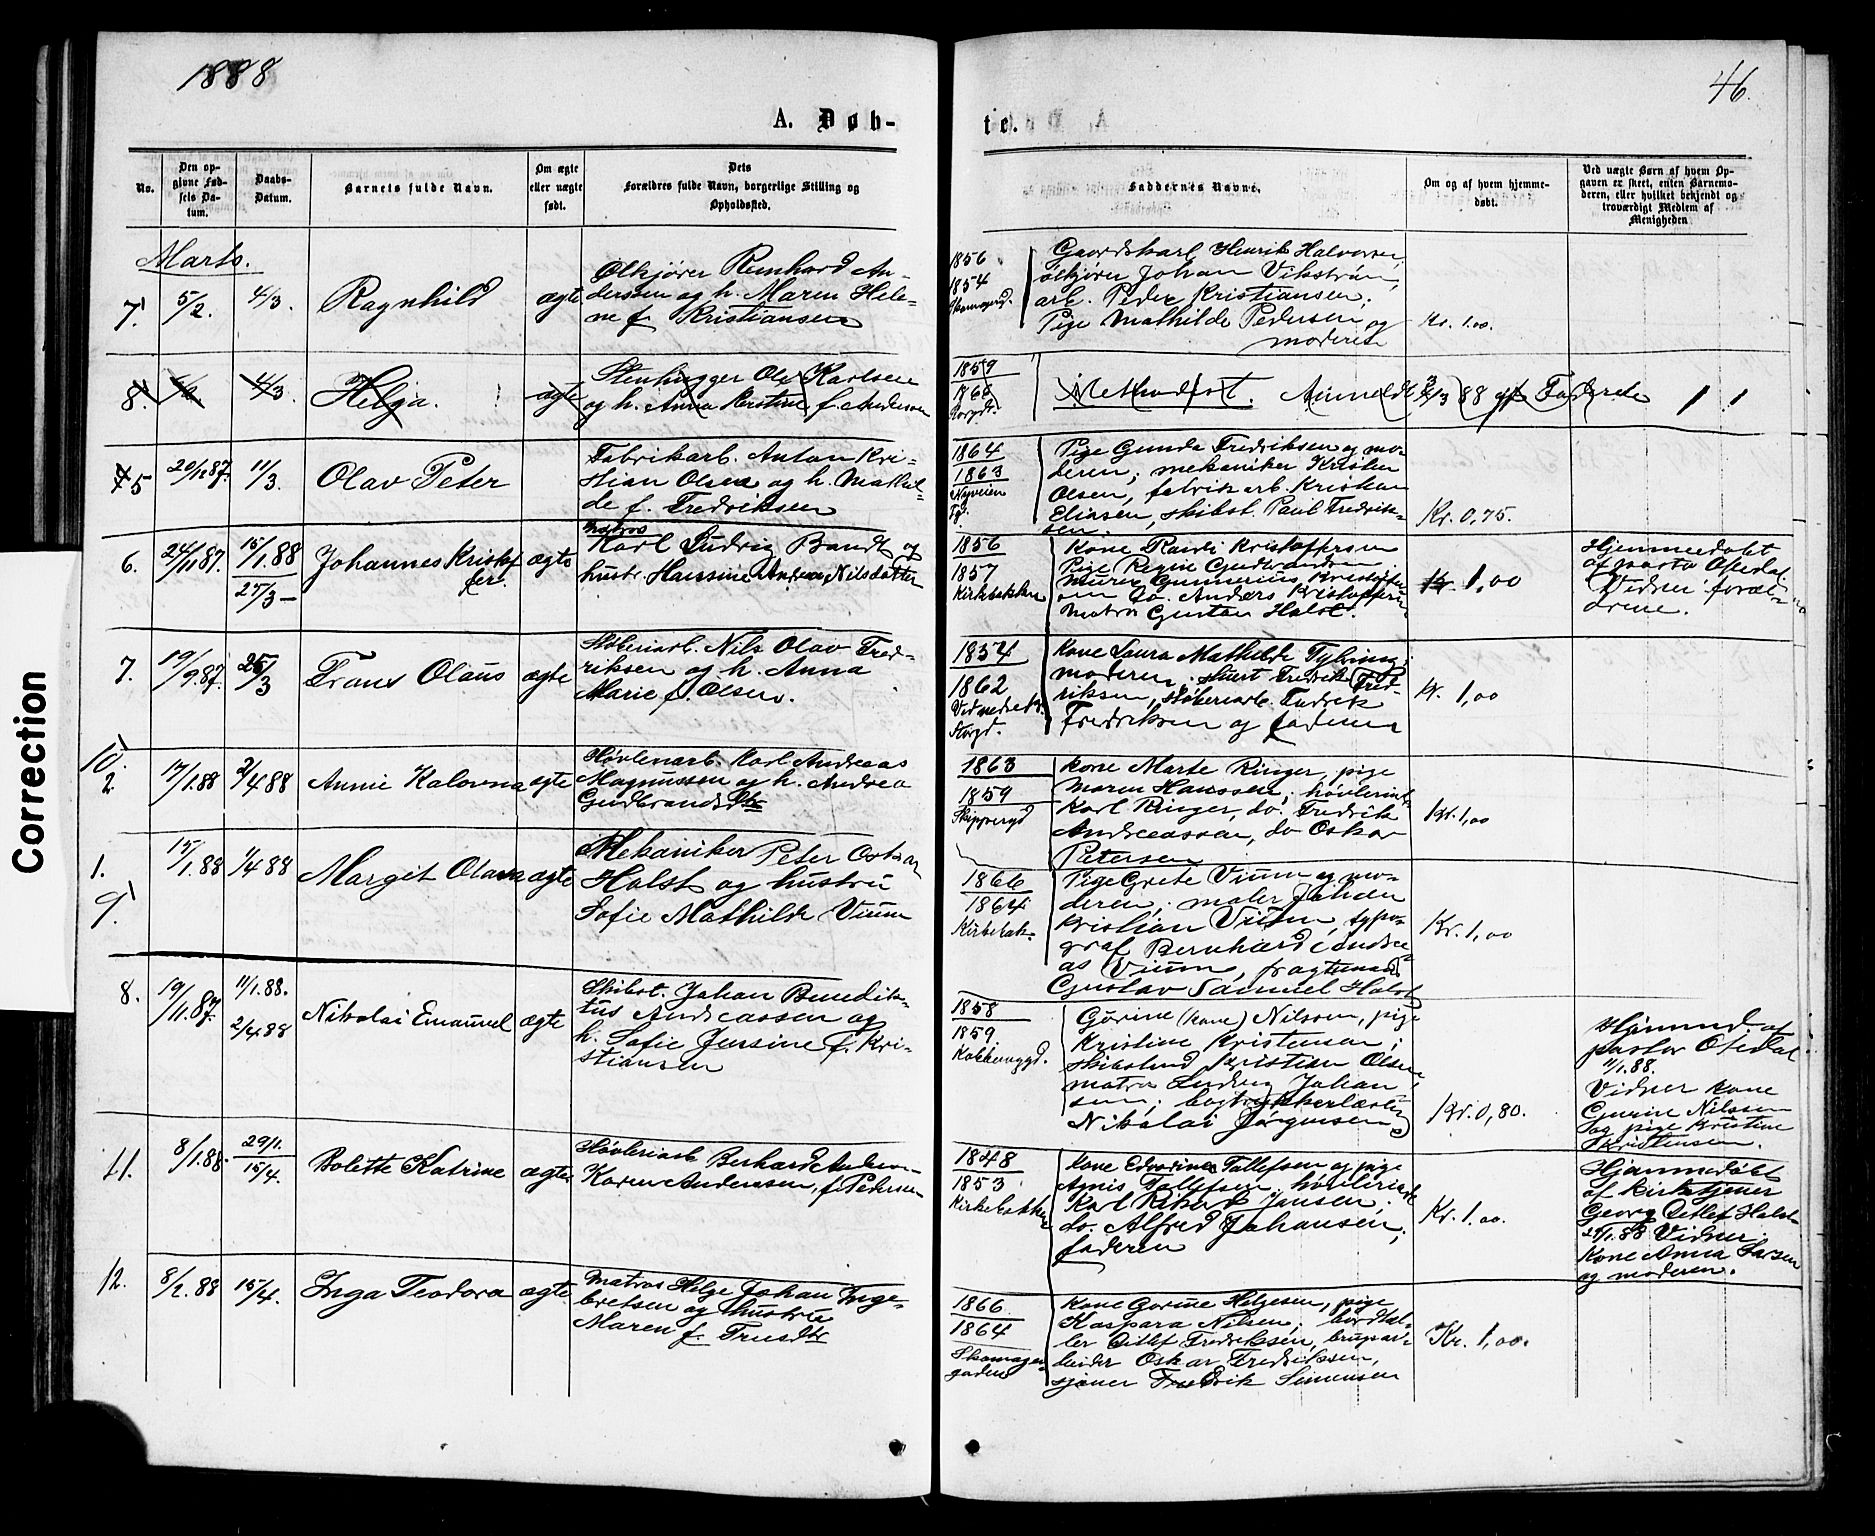 1888
46.
A. Døb-
te.
No.
Den op-
givne Fød-
sels Da-
tum.
Daabs-
Datum.
Barnets fulde Navn.
Om ægte
eller uægte
født.
Dets
Forældres fulde Navn, borgerlige Stilling og
Opholdssted.
Faddernes Navne.
Om og af hvem hjemme-
døbt.
Ved uægte Børn af hvem Op-
gaven er skeet, enten Barnemo-
deren, eller hvilket bekjendt og
troværdigt Medlem af
Menigheden
Marts.
7.
5/2.
4/3.
Ragnhild
ægte
Ølkjører Reinhard An-
derssen og h. Maren Hele-
ne f. Kristiansen
1856
1854
Gaardskarl Henrik Halvorsen,
ølkjører Johan Vikstrøm,
arb. Peder Kristiansen.
Pige Mathilde Pedersen og
moderen
Kr. 1.00.
8.
4/3
Helga.
ægte
Stenhugger Ole Karlsen
og h. Anna Kristine f. Andersen
1859
1860
Storgd.
Methodist. Anmeldt 3/3 88 af Faderen
5
20/12 87.
11/3.
Olav Peter
Fabrikarb. Anton Kri-
stian Olsen og h. Mathil-
de f. Fredriksen
1864
1863
Nyveien
Pige Gunda Fredriksen og mo-
deren; mekaniker Kristen
Olsen, fabrikarb. Kristian
Eliasen, skibst. Paul Fredrik-
sen.
Kr. 0,75.
6.
24/11 87.
15/1.88
27/3 -
Johannes Kristof
fer.
ægte
Matros
Karl Ludvig Brandt og
hustr. Hansine Andrea Nilsdatter
1856
1857
Kirkebakken
Kone Randi Kristoffersen
Pige Regine Gudbrandsen
murer Gunnerius Kristoffer-
sen do. Anders Kristoffersen
Matros Gustav Halst.
Kr. 1,00
Hjemmedøbt
af pastor Ofedal.
Vidner foræl-
drene.
7.
19/9.87.
25/3
Frans Olaus
ægte
Støberiarb. Nils Olav Fred-
riksen og h. Anna
Marie f. Olsen.
1854
1862
Storgd.
Kone Laura Mathilde Tybring;
moderen. Fredrik Fred-
riksen, støberiarb. Fredrik
Fredriksen og faderen
Kr. 1,00
10.
2.
17/1.88
2/4 88
Annie Kalovna
ægte
Høvleriarb. Karl Andreas
Magnussen og h. Andrea
Gudbrandsdtr
1863
1859
Skippergd
Kone Marte Ringer, pige
Maren Hanssen; høvleriarb.
Karl Ringer, do. Fredrik
Andreassen, do Oskar
Petersen
Kr. 1,00
1.
9.
15/1.88
1/4 88
Margit Olava
ægte
Mekaniker Peter Oskar
Halst og hustru
Sofie Mathilde Vium
1866
1864
Kirkebak.
Pige Grete Vium og mo-
deren; maler Johan
Kristian Vium, typo-
graf Bernhard Andre-
as Vium, fragtemand
Gustav Samuel Halst
Kr. 1,00
8.
19/11.87.
11/1.88.
2/4.88
Nikolai Emanuel
ægte
Skibst. Johan Benedik-
tus Andreassen og
h. Sofie Jensine f. Kri-
stiansen
1858
1859
Gurine (kone) Nilssen, pige
Kristine Kristensen;
skibstmd Kristian Olsen,
matros Ludvig Johan
sen;
Nikolai Jørgensen
Kr. 0,80.
Hjemmed. af
pastor Ofedal
11/1.88.
Vidner Kone
Gurine Nilssen
og pige Kristine
Kristensen.
11.
8/1.88.
29/1.
15/4.
Bolette Katrine
ægte
Høvleriarb Berhard Anders-
Karen Anderssen, f. Pedersen
1848
1853
Kirkebakken
Kone Edvardine Tallefsen og pige
Agnis Tallefsen, høvleriarb
Karl Rikart Jansen;
do. Alfred Johansen;
faderen
Kr. 1.00.
Hjemmedøbt
af kirketjener
Georg Ditlef Halst
29/1.88 Vidner
Kone Anna Larsen
og moderen.
12.
8/2.88
15/4.
Inga Teodora
ægte
Matros Helge Johan Inge-
bretsen og hustru
Maren f. Trulsdtr
1866
1864
Skomager-
gaden
Kone Gurine Helgesen, pige
Kaspara Nilsen;
Ditlef Fredriksen, brugsar-
beider Oskar Fredriksen,
sjømer Fredrik Simensen
Kr. 1,00.
Correction